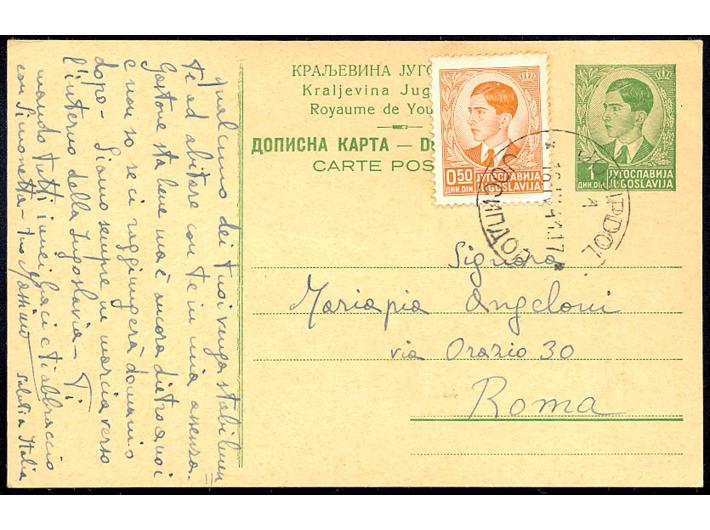 qualcuno dei tuoi venga stabilmen
te ad abitare con te in mia assenza.
Gastone sta bene ma è ancora dietro a noi
e non so se ci raggiungerà domani o
dopo - Siamo sempre in marcia verso
l'interno della Jugoslavia - Ti
mando tutti i miei baci e ti abbraccio
con Simonetta - tuo
Saluti a Italia
КРАЉЕВИНА ЈУГО
Kraljevina Jug
Royaume de You
ДОПИСНА КАРТА — D
CARTE POS
0,50 ЈУГОСЛАВИЈА
ДИН. DIN. JUGOSLAVIJA
1 ЈУГОСЛАВИЈА
ДИН. DIN. JUGOSLAVIJA
Signora
Mariapia Angeloni
via Orazio 30
Roma